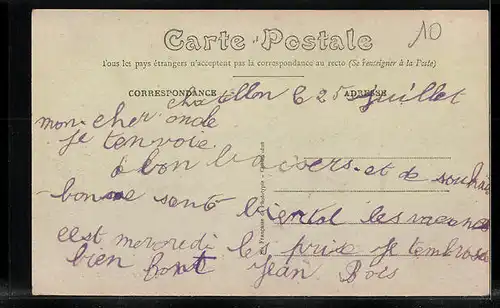 10
Carte Postale
Tous les pays étrangers n'acceptent pas la correspondance au recto (Se renseigner à la Poste)
CORRESPONDANCE
ADRESSE
chatillon le 25 juillet
mon cher oncle
je tenvoie
de bon baisers et de souhait
bonne santé bientot les vacances
cest mercredi les prix je tembrasse
bien Jean Bois